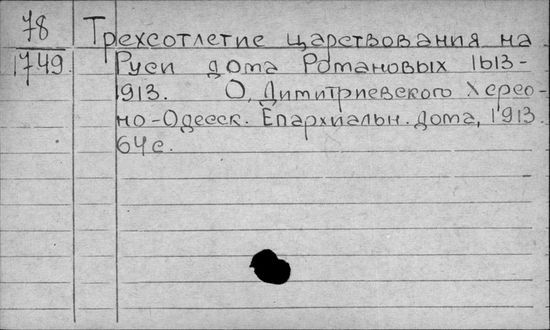 78
Трехсотлетие царствования на
1749. Руси дома Романовых 1613-
1913. О, Димитриевского Херсо-
но-Одесск. Епархиальн. дома, 1913.
64 с.